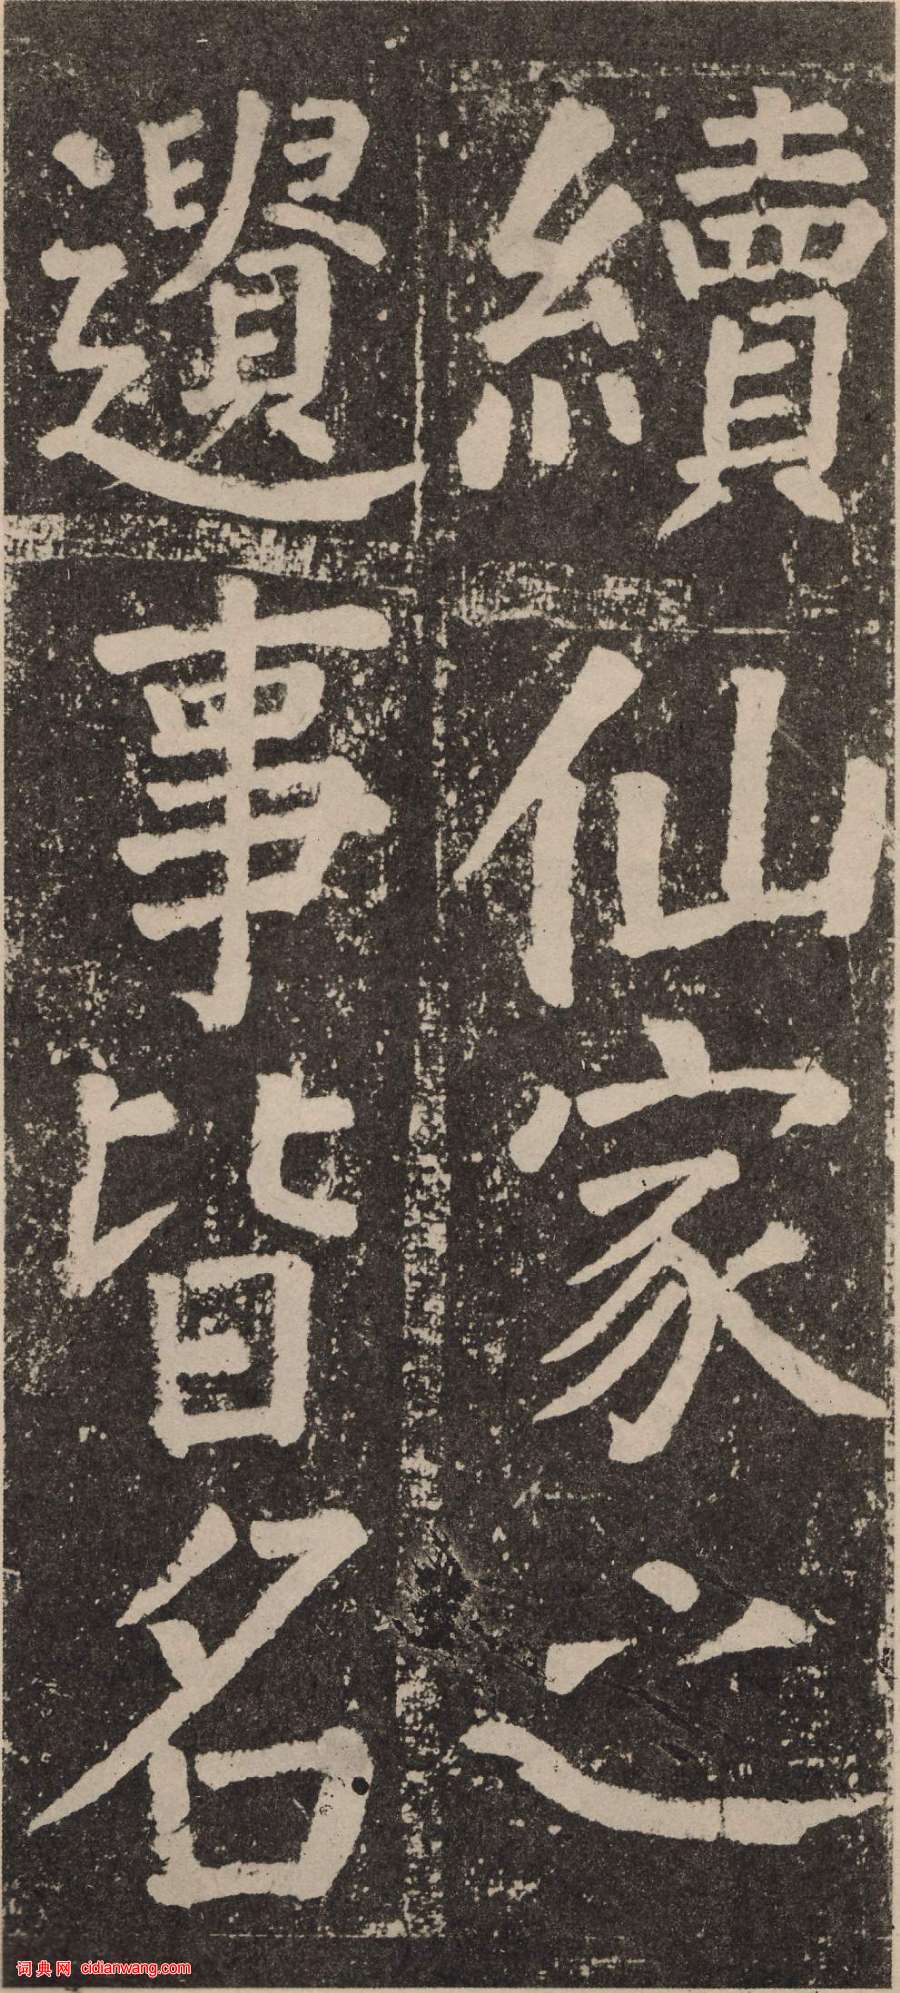 續仙家之
遺事皆名
词典网 cidianwang.com